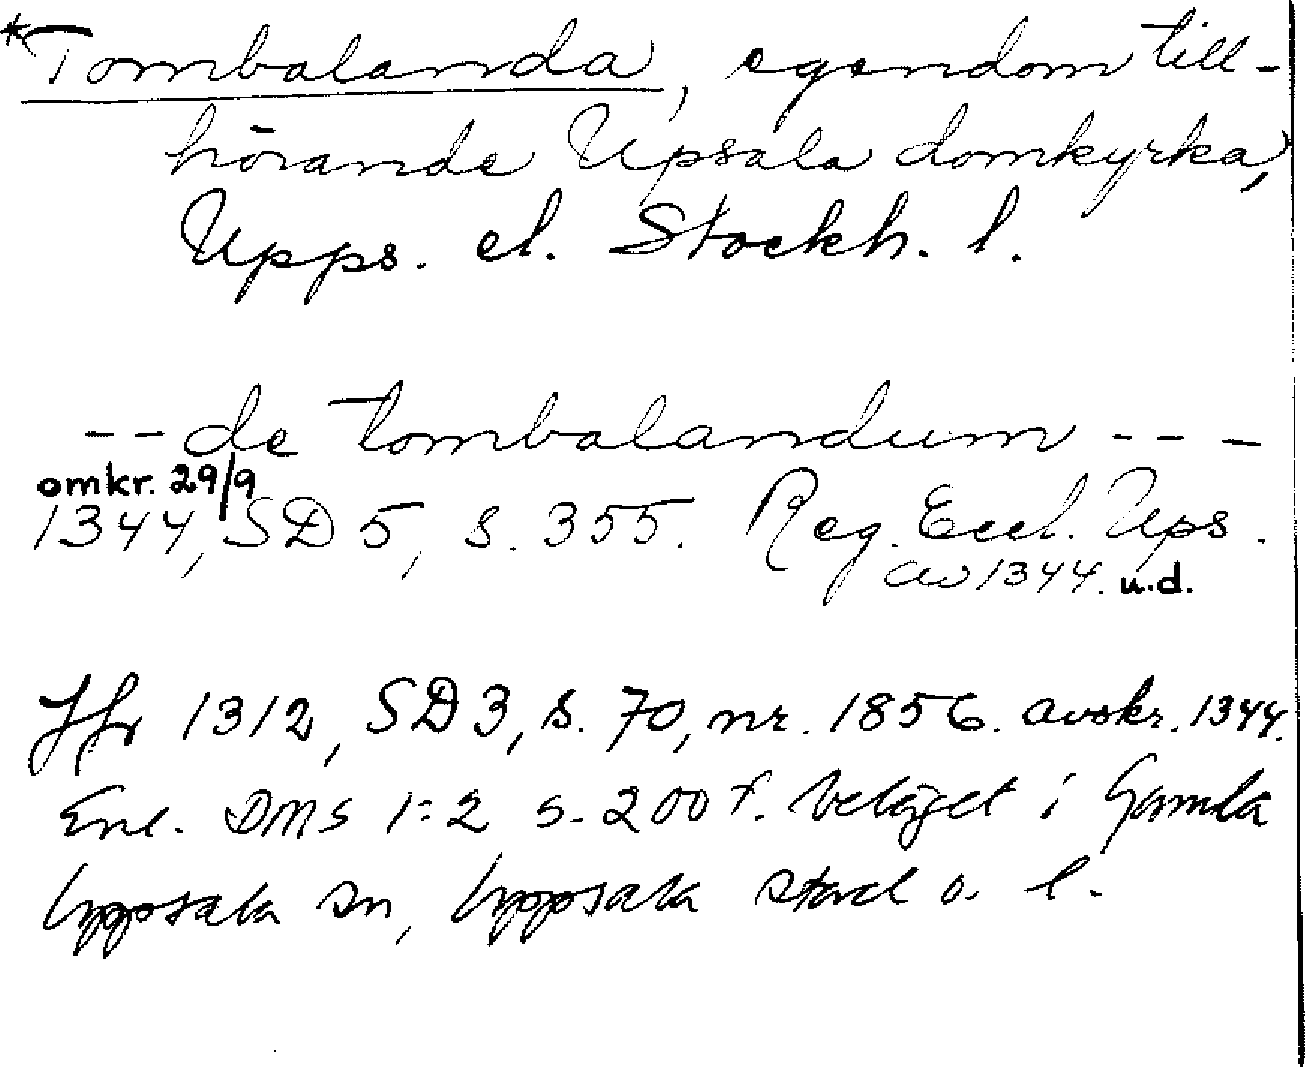 *Tombalanda, egendom till-
hörande Upsala domkyrka,
Upps. el. Stockh. l.
-- de tombalandum ---
omkr. 29/9
1344, SD 5, s. 355. Reg. Eccl. Ups.
av 1344. u.d.
Jfr 1312, SD 3, s. 70, nr. 1856. avskr. 1344.
Enl. DMS 1:2 s. 200 f. beläget i Gamla
Uppsala sn, Uppsala stad o. l.